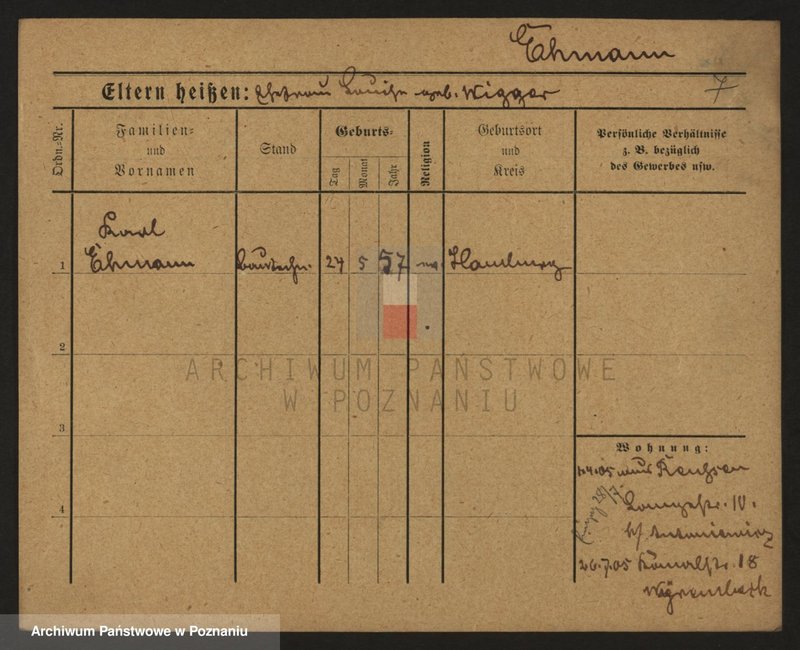 Ehmann
7
Eltern heißen: Ehefrau Louise geb. Wigger
Ordn.-Nr.
Familien-
und
Vornamen
Stand
Geburts-
Tag
Monat
Jahr
Religion
Geburtsort
und
Kreis
Persönliche Verhältnisse
z. B. bezüglich
des Gewerbes usw.
Karl
1 Ehmann Bautechn. 24 5 57 ev. Hamburg
2
ARCHIWUM PAŃSTWOWE
W POZNANIU
3
Wohnung:
1.4.05
4
Langestr. IV.
b/ Antoniewicz
26.7.05 18
Archiwum Państwowe w Poznaniu